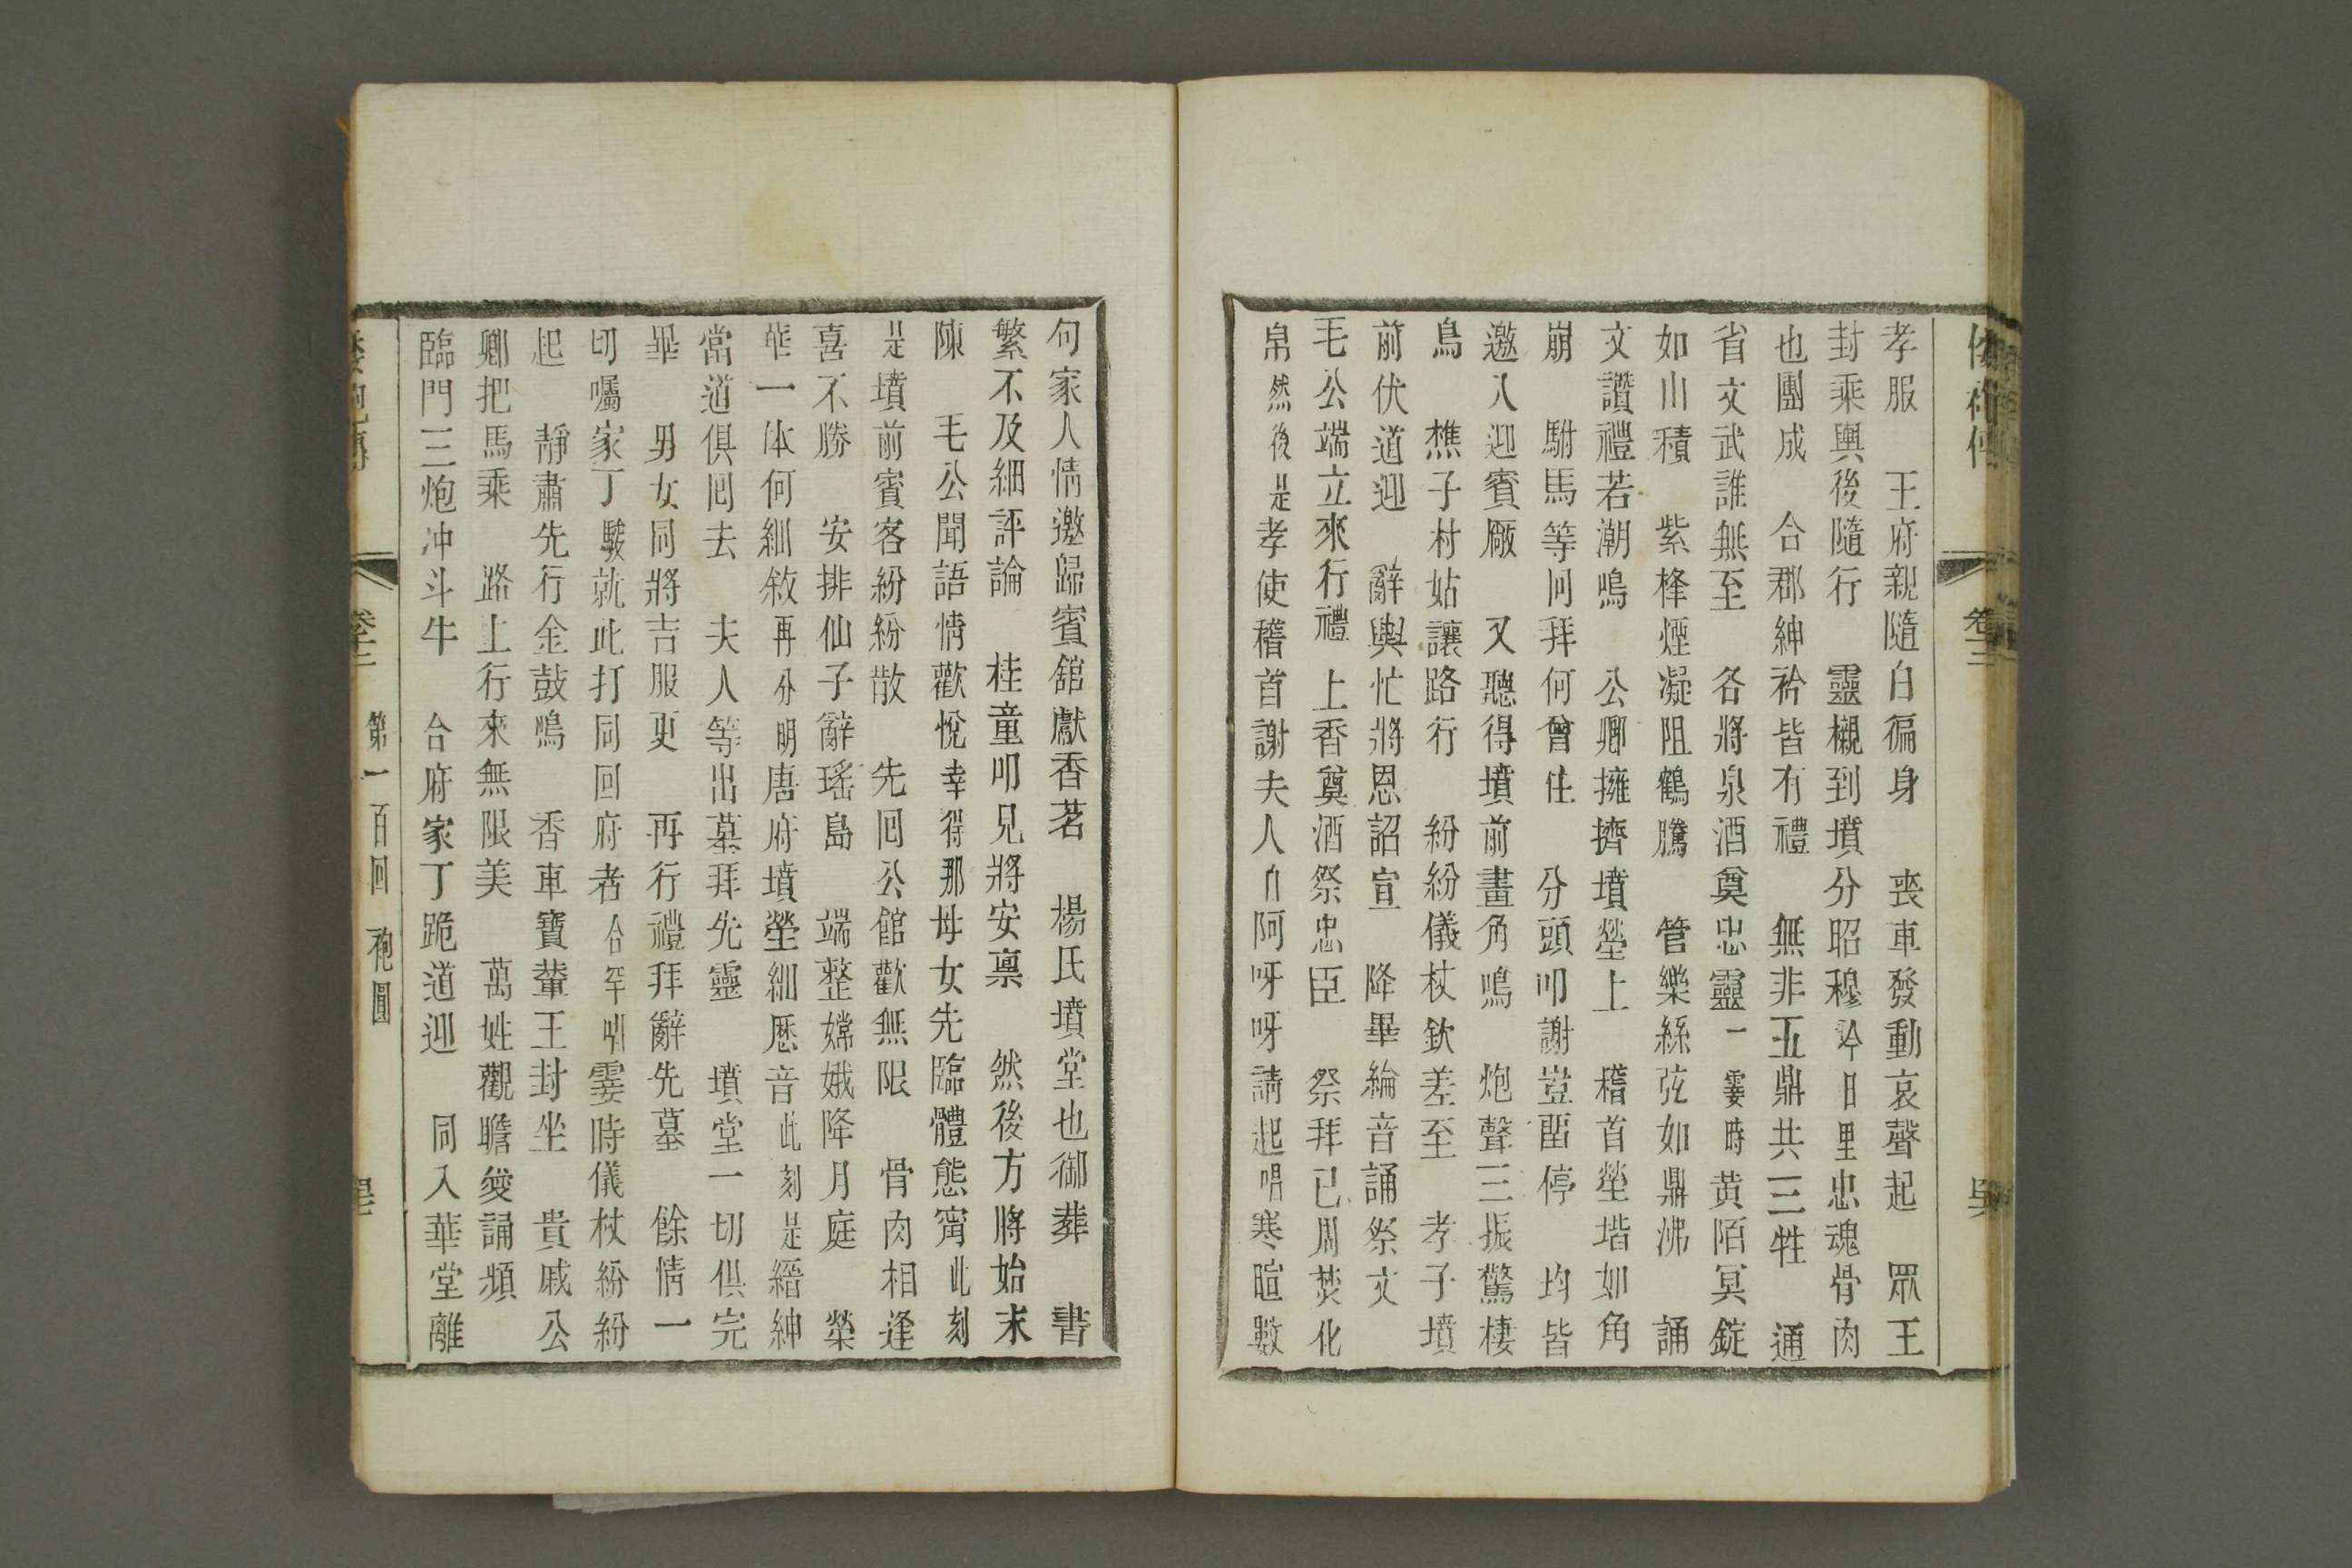 孝服　王府親隨白徧身　喪車發動哀聲起　眾王
封乘輿後隨行　靈櫬到墳分昭穆　日里忠魂骨肉
也團成　合郡紳衿皆有禮　無非五鼎共三牲　通
省文武誰無至　各將泉酒奠忠靈　一霎時黃陌冥錠
如山積　紫檀煙凝阻鶴騰　管樂絲弦如鼎沸　誦
文讚禮若潮鳴　公卿擁擠墳塋上　稽首塋堦如角
崩　駙馬等囘拜何曾住　分頭叩謝豈畱停　均皆
邀入迎賓厰　又聽得墳前畫角鳴　炮聲三振驚棲
鳥　樵子村姑讓路行　紛紛儀杖欽差至　孝子墳
前伏道迎　辭輿忙將恩詔宣　降畢綸音誦祭文
毛公端立來行禮　上香奠酒祭忠臣　祭拜已周焚化
帛　然後是孝使稽首謝夫人　白阿呀呀請起　唱寒暄數
卷三
句家人情邀歸賓舘獻香茗　楊氏墳堂也御葬　書
繁不及細評論　桂童叩兄將安禀　然後方將始末
陳　毛公聞語情歡悅　幸得那母女先臨體態寗　此刻
是墳前賓客紛紛散　先囘公館歡無限　骨肉相逢
喜不勝　安排仙子辭瑤島　端整嫦娥降月庭　榮
華一体何細敘　再分明唐府墳塋細歷音　此刻是縉紳
當道俱囘去　夫人等出墓拜先靈　墳堂一切俱完
畢　男女同將吉服更　再行禮拜辭先墓　餘情一
切囑家丁　就此打同回府者　合罕　唱霎時儀杖紛紛
起　靜肅先行金鼓鳴　香車寶輦王封坐　貴戚公
卿把馬乘　路上行來無限美　萬姓觀瞻贊誦頻
臨門三炮冲斗牛　合府家丁跪道迎　同入華堂離
卷三　第一百回　袍圓